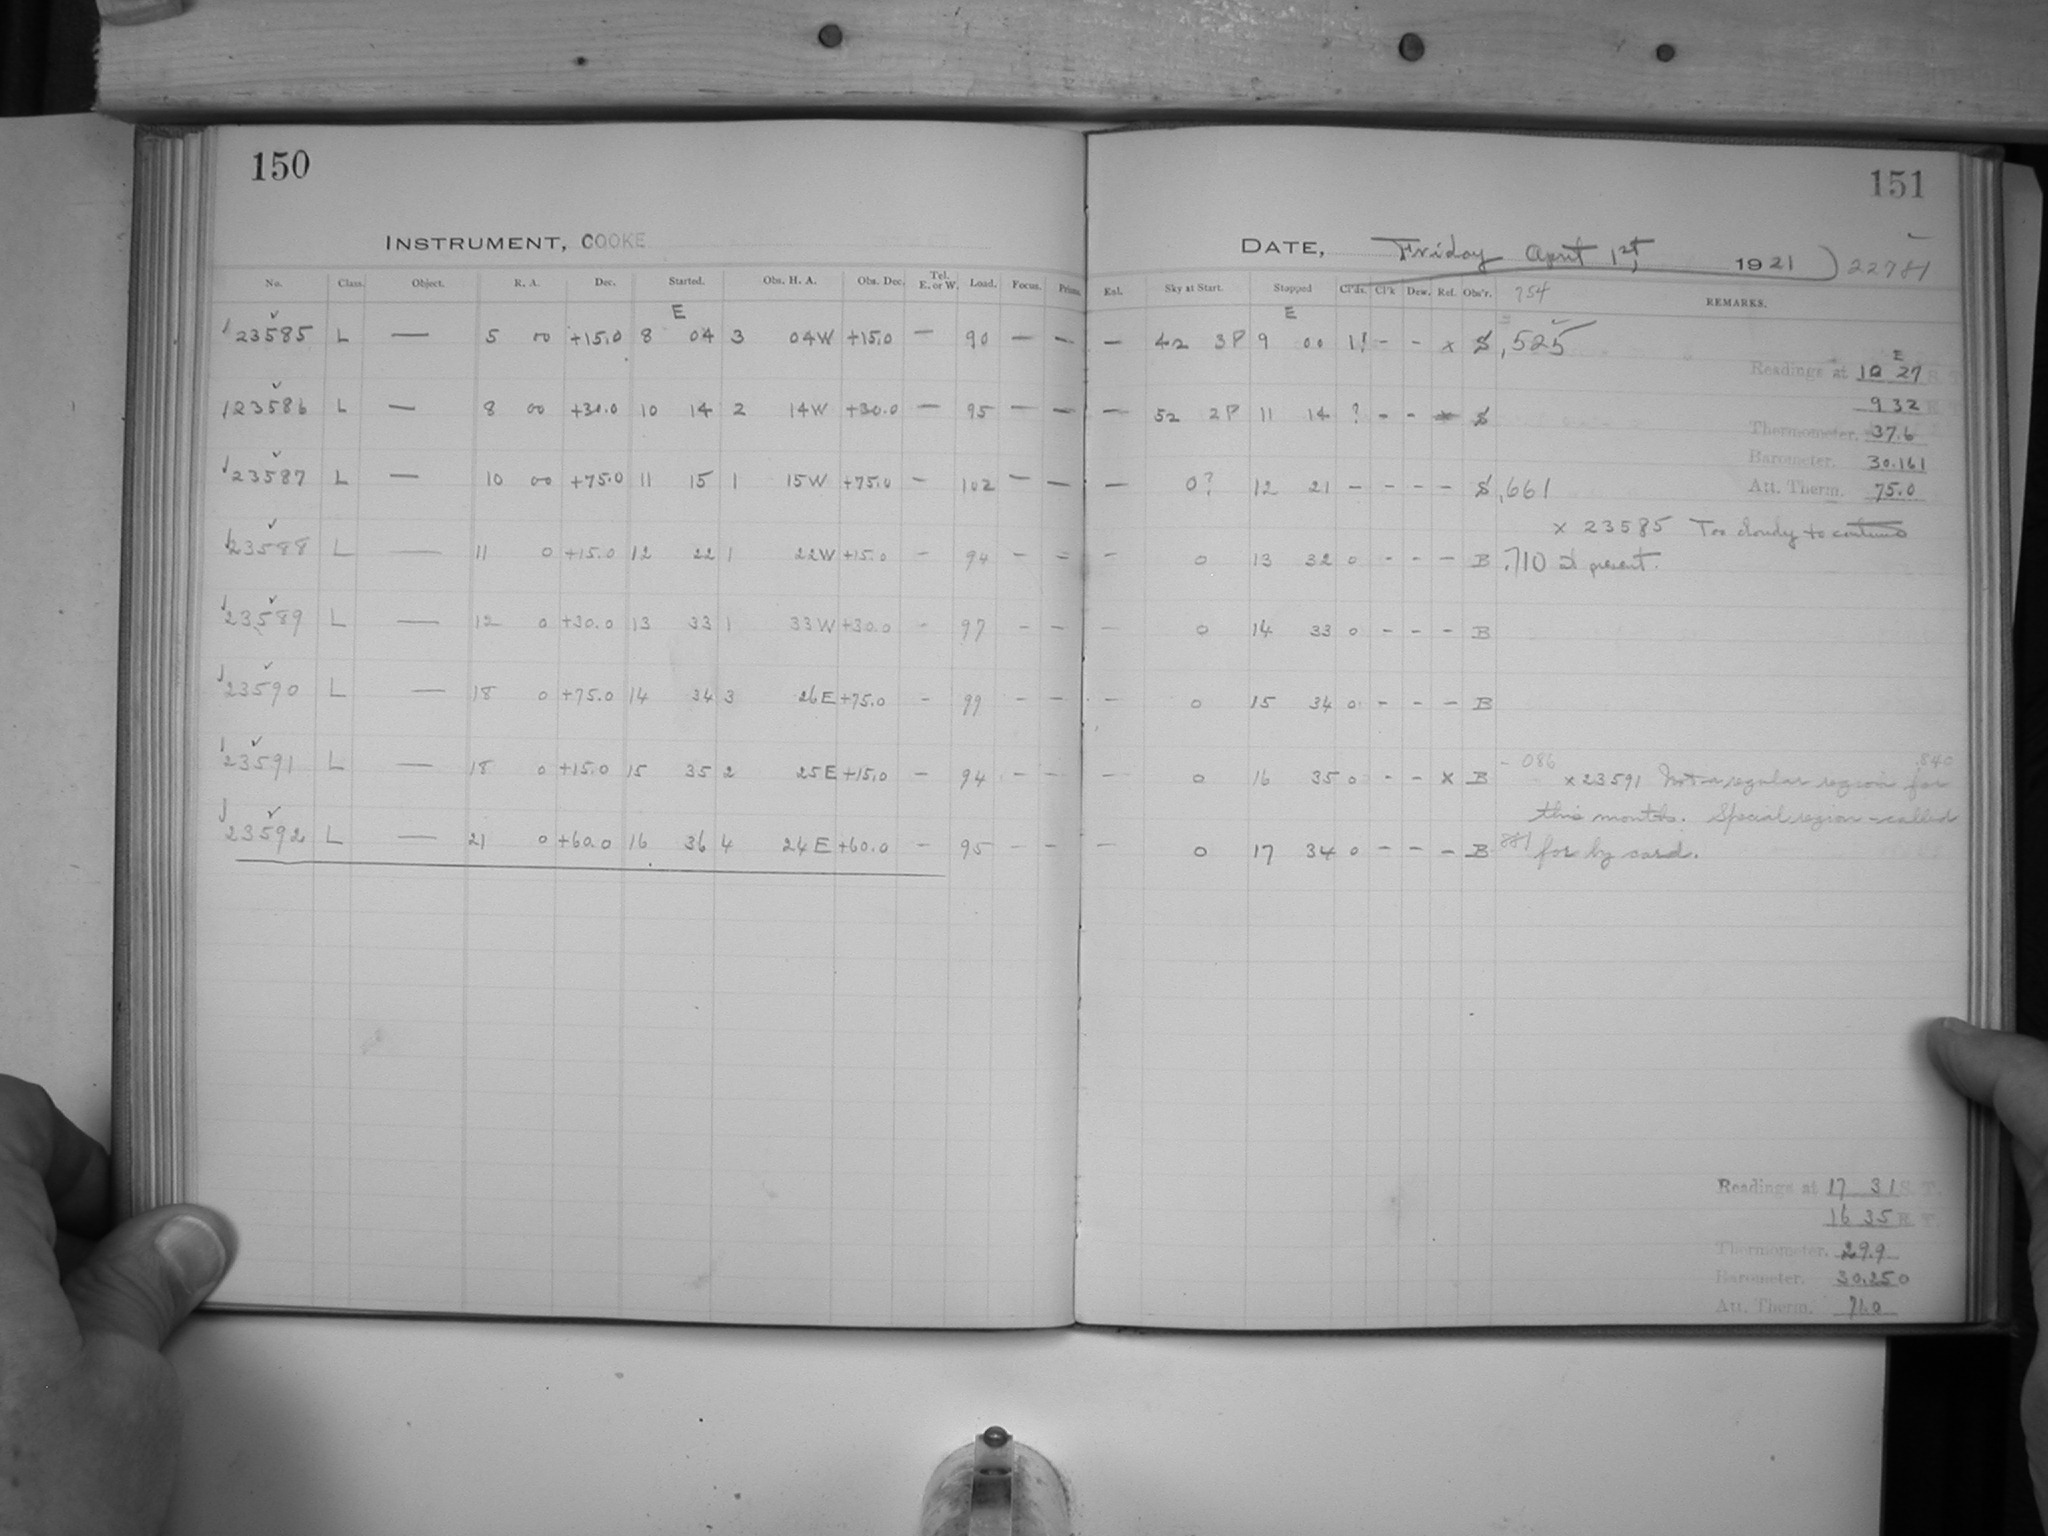 150
INSTRUMENT, COOKE
No. Class. Object. R. A. Dec. Started. Obs. H. A. Obs. Dec. Tel. E. or W. Load. Focus. Prisms.
E
23585 L — 5 00 +15.0 8 04 3 04W +15.0 — 90 — —
23586 L — 8 00 +30.0 10 14 2 14W +30.0 — 95 — —
23587 L — 10 00 +75.0 11 15 1 15W +75.0 — 102 — —
23588 L — 11 0 +15.0 12 22 1 22W +15.0 - 94 - -
23589 L — 12 0 +30.0 13 33 1 33W +30.0 - 97 - -
23590 L — 18 0 +75.0 14 34 3 26E +75.0 - 99 - -
23591 L — 18 0 +15.0 15 35 2 25E +15.0 - 94 - -
23592 L — 21 0 +60.0 16 36 4 24E +60.0 - 95 - -
151
DATE, Friday April 1st, 1921) 22781
Exl. Sky at Start. Stopped Cl'ds. Cl'k Dew. Ref. Obs'r. 754 REMARKS.
E
— 42 3P 9 00 1! - - x S .525
— 52 2P 11 14 ? - - S
— 0? 12 21 - - - - S .661
x 23585 Too cloudy to continue
— 0 13 32 0 - - - B .710 at present.
— 0 14 33 0 - - - B
— 0 15 34 0 - - - B
- 086 .840
— 0 16 35 0 - - x B x 23591 Not a regular region for
this months. Special region - called
— 0 17 34 0 - - - B 881 for by card.
E
Readings at 10 27 S. T.
9 32
Thermometer. 37.6
Barometer. 30.161
Att. Therm. 75.0
Readings at 17 31 S. T.
16 35 E. T.
Thermometer. 29.9
Barometer. 30.250
Att. Therm.